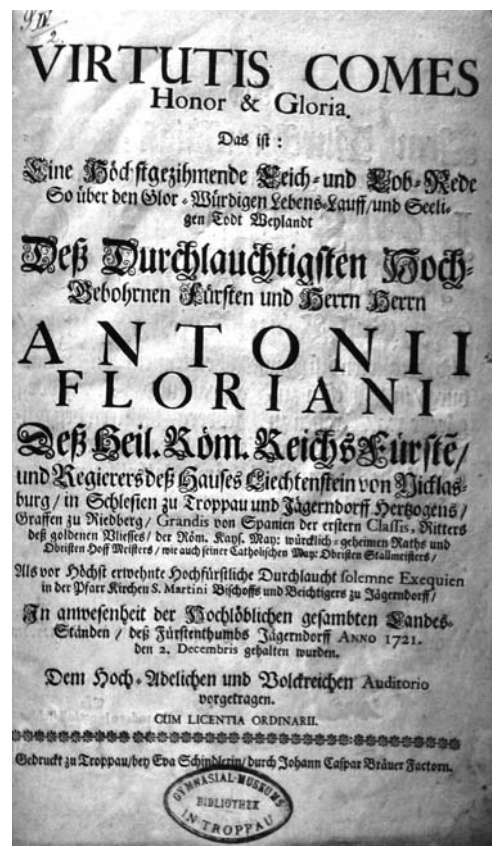 VIRTUTIS COMES
Honor & Gloria.
Das ist:
Eine Höchstgezihmende Leich- und Lob-Rede
So über den Glor-Würdigen Lebens-Lauff/und Seeli-
gen Todt Weylandt
Deß Durchlauchtigsten Hoch-
Gebohrnen Fürsten und Herrn Herrn
ANTONII
FLORIANI
Deß Heil. Röm. Reichs Fürstẽ/
und Regierers deß Hauses Liechtenstein von Nicklas-
burg / in Schlesien zu Troppau und Jägerndorff Hertzogens /
Graffen zu Riedberg / Grandis von Spanien der erstern Classis, Ritters
deß goldenen Vliesses / der Röm. Kays. May: würcklich-geheimen Raths und
Obristen Hoff Meisters / wie auch seiner Catholischen May: Obristen Stallmeisters /
Als vor Höchst erwehnte Hochfürstliche Durchlaucht solemne Exequien
in der Pfarr Kirchen S. Martini Bischoffs und Beichtigers zu Jägerndorff /
In anwesenheit der Hochlöblichen gesambten Landes-
Ständen / deß Fürstenthumbs Jägerndorff ANNO 1721.
den 2. Decembris gehalten wurden.
Dem Hoch-Adelichen und Volckreichen Auditorio
vorgetragen.
CUM LICENTIA ORDINARII.
Gedruckt zu Troppau/bey Eva Schindlerin/durch Johann Caspar Bräuer Factorn.
GYMNASIAL-MUSEUMS
BIBLIOTHEK
IN TROPPAU